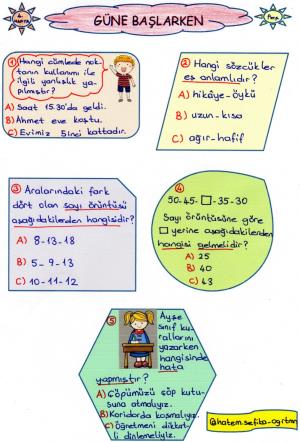 4. HAFTA
GÜNE BAŞLARKEN
Pzrs.
1 Hangi cümlede nok-
tanın kullanımı ile
ilgili yanlışlık ya-
pılmıştır?
A) Saat 15.30'da geldi.
B) Ahmet eve koştu.
C) Evimiz 5inci kattadır.
2 Hangi sözcükler
eş anlamlıdır?
A) hikâye-öykü
B) uzun-kısa
C) ağır-hafif
3 Aralarındaki fark
dört olan sayı örüntüsü
aşağıdakilerden hangisidir?
A) 8-13-18
B) 5-9-13
C) 10-11-12
4
50-45-□-35-30
Sayı örüntüsüne göre
□ yerine aşağıdakilerden
hangisi gelmelidir?
A) 25
B) 40
C) 43
5 Ayşe
sınıf ku-
rallarını
yazarken
hangisinde
hata
yapmıştır?
A) Çöpümüzü çöp kutu-
suna atmalıyız.
B) Koridorda koşmalıyız.
C) Öğretmeni dikkat-
li dinlemeliyiz.
@hatem.sefiba-ogrtmn